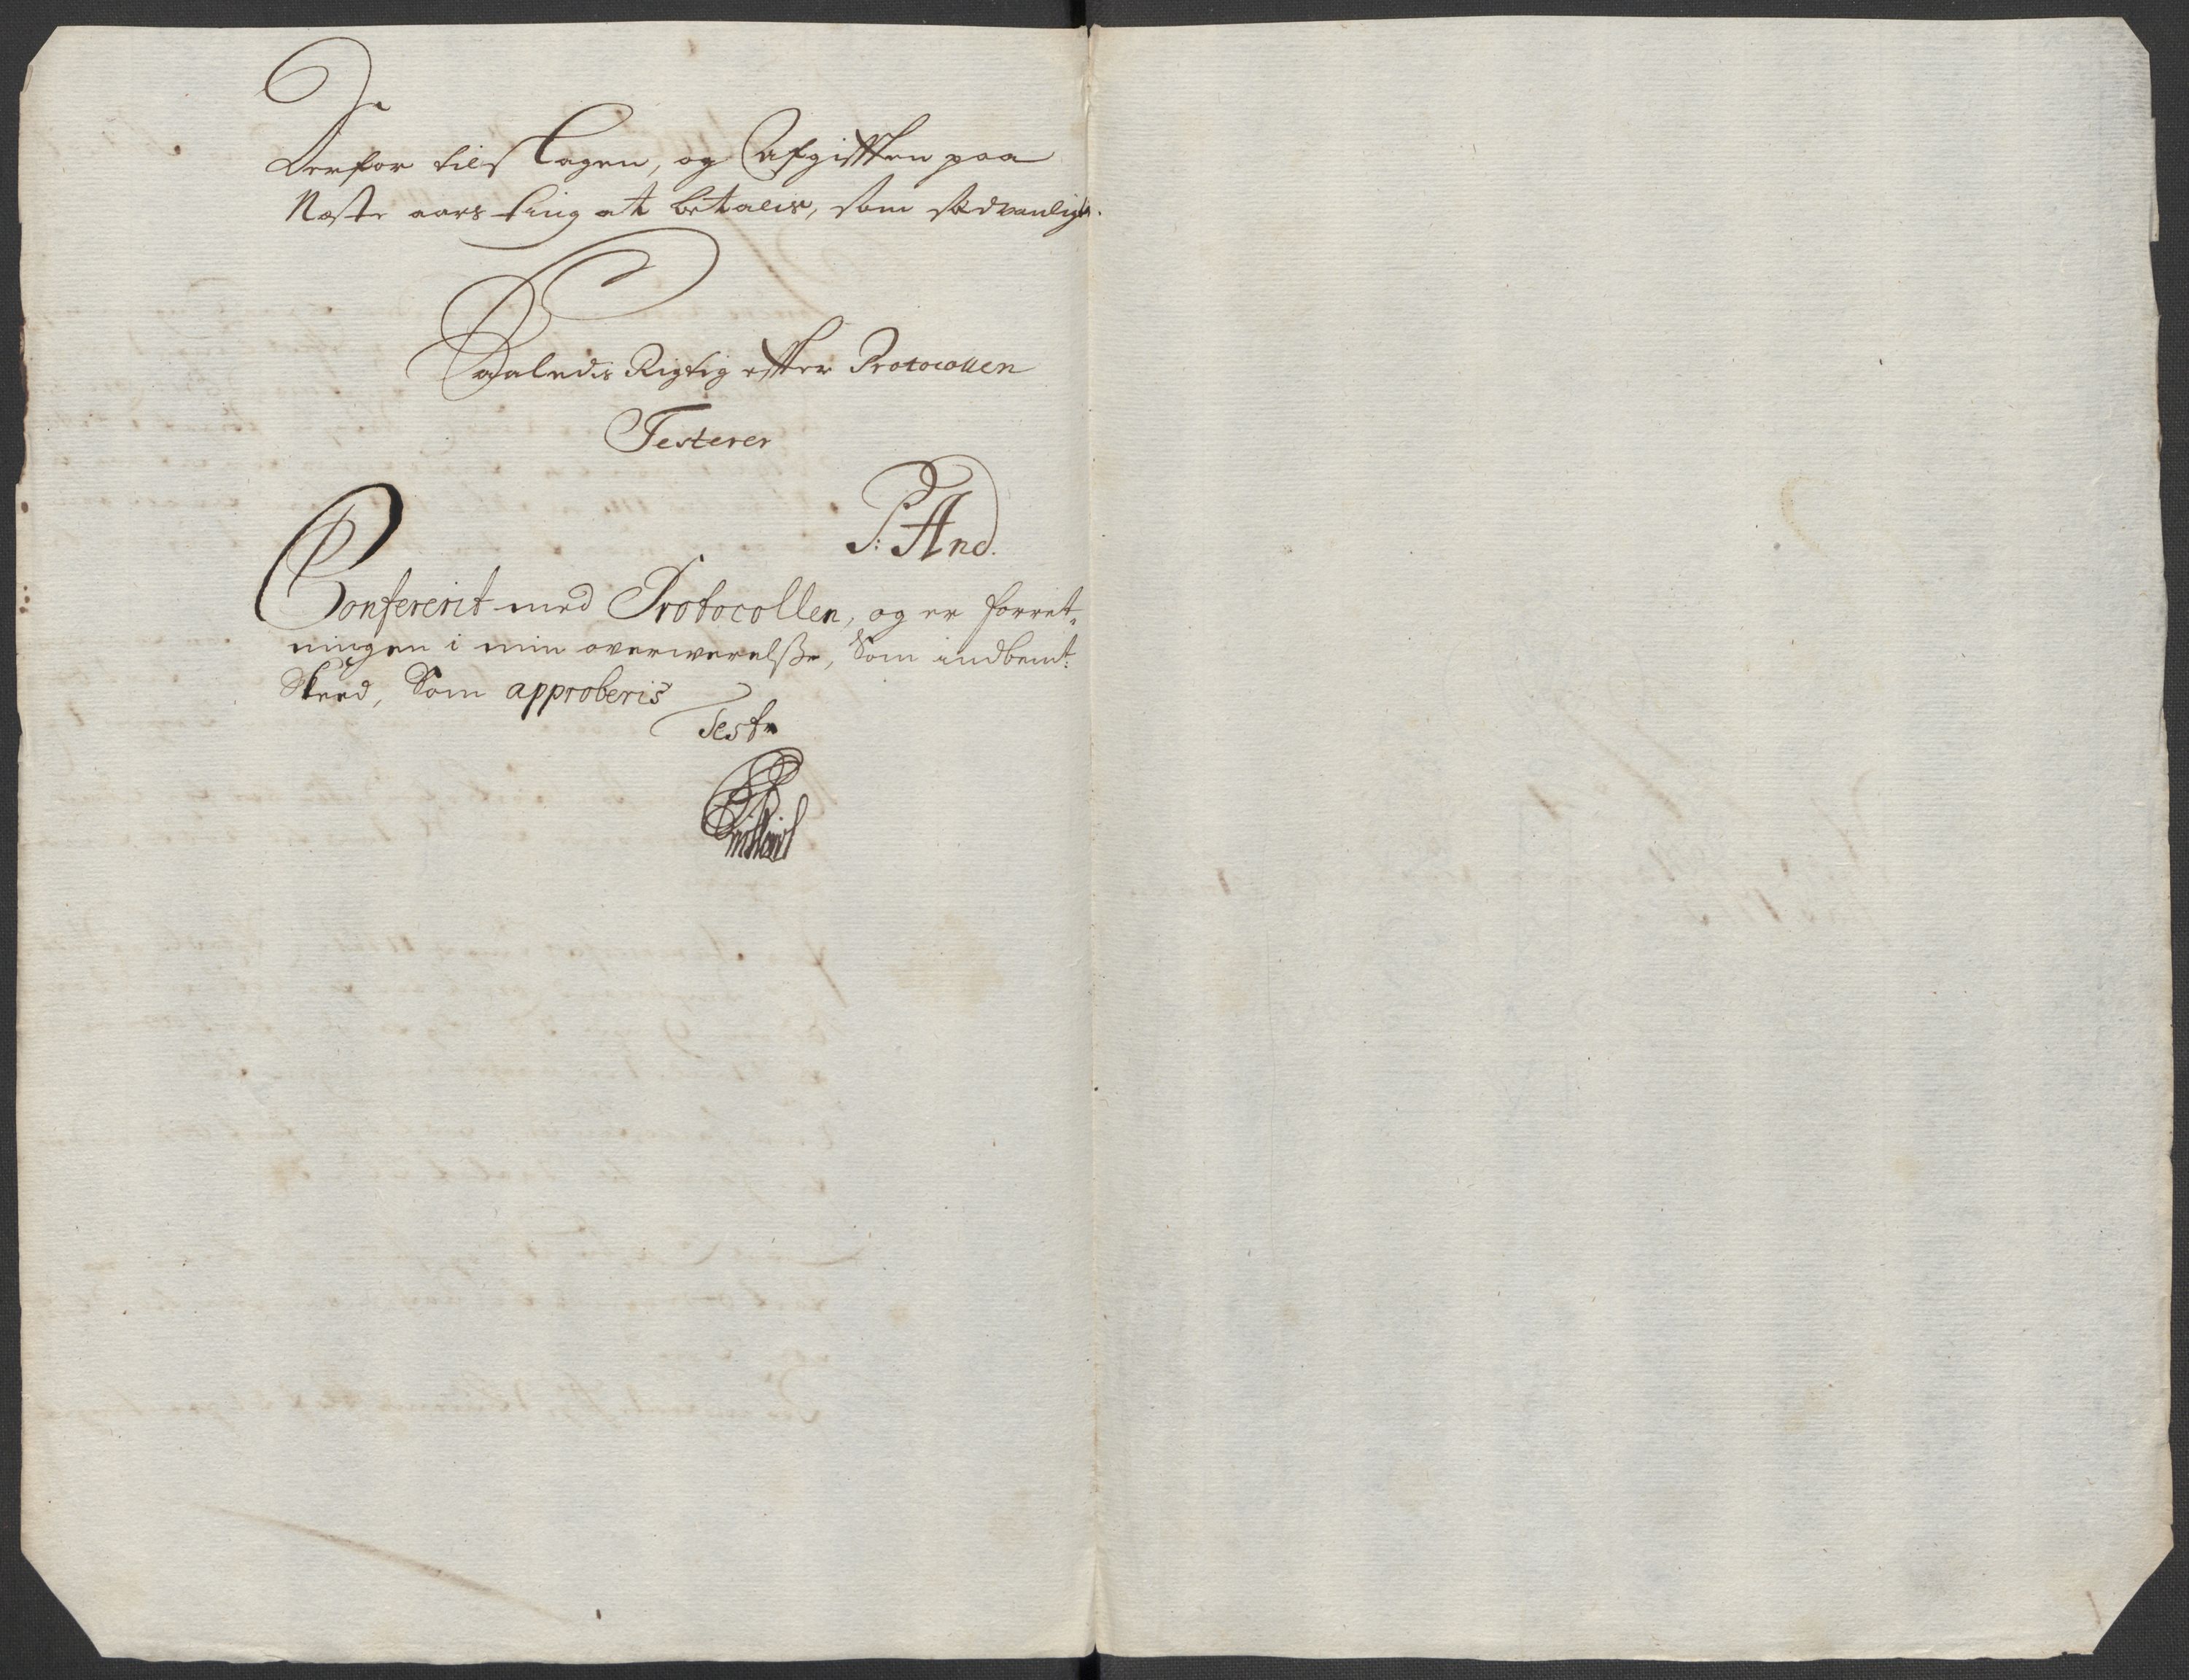 Derfor tilslagen, og Afgifften paa
Næste aars ting at betalis, som sædvanligt.
Saaledis Rigtig effter Protocollen
Testerer
P: And.
Confererit med Protocollen, og er forret-
ningen i min overwerelsße, Som indbemt:
Skeed, Som approberis
Teste